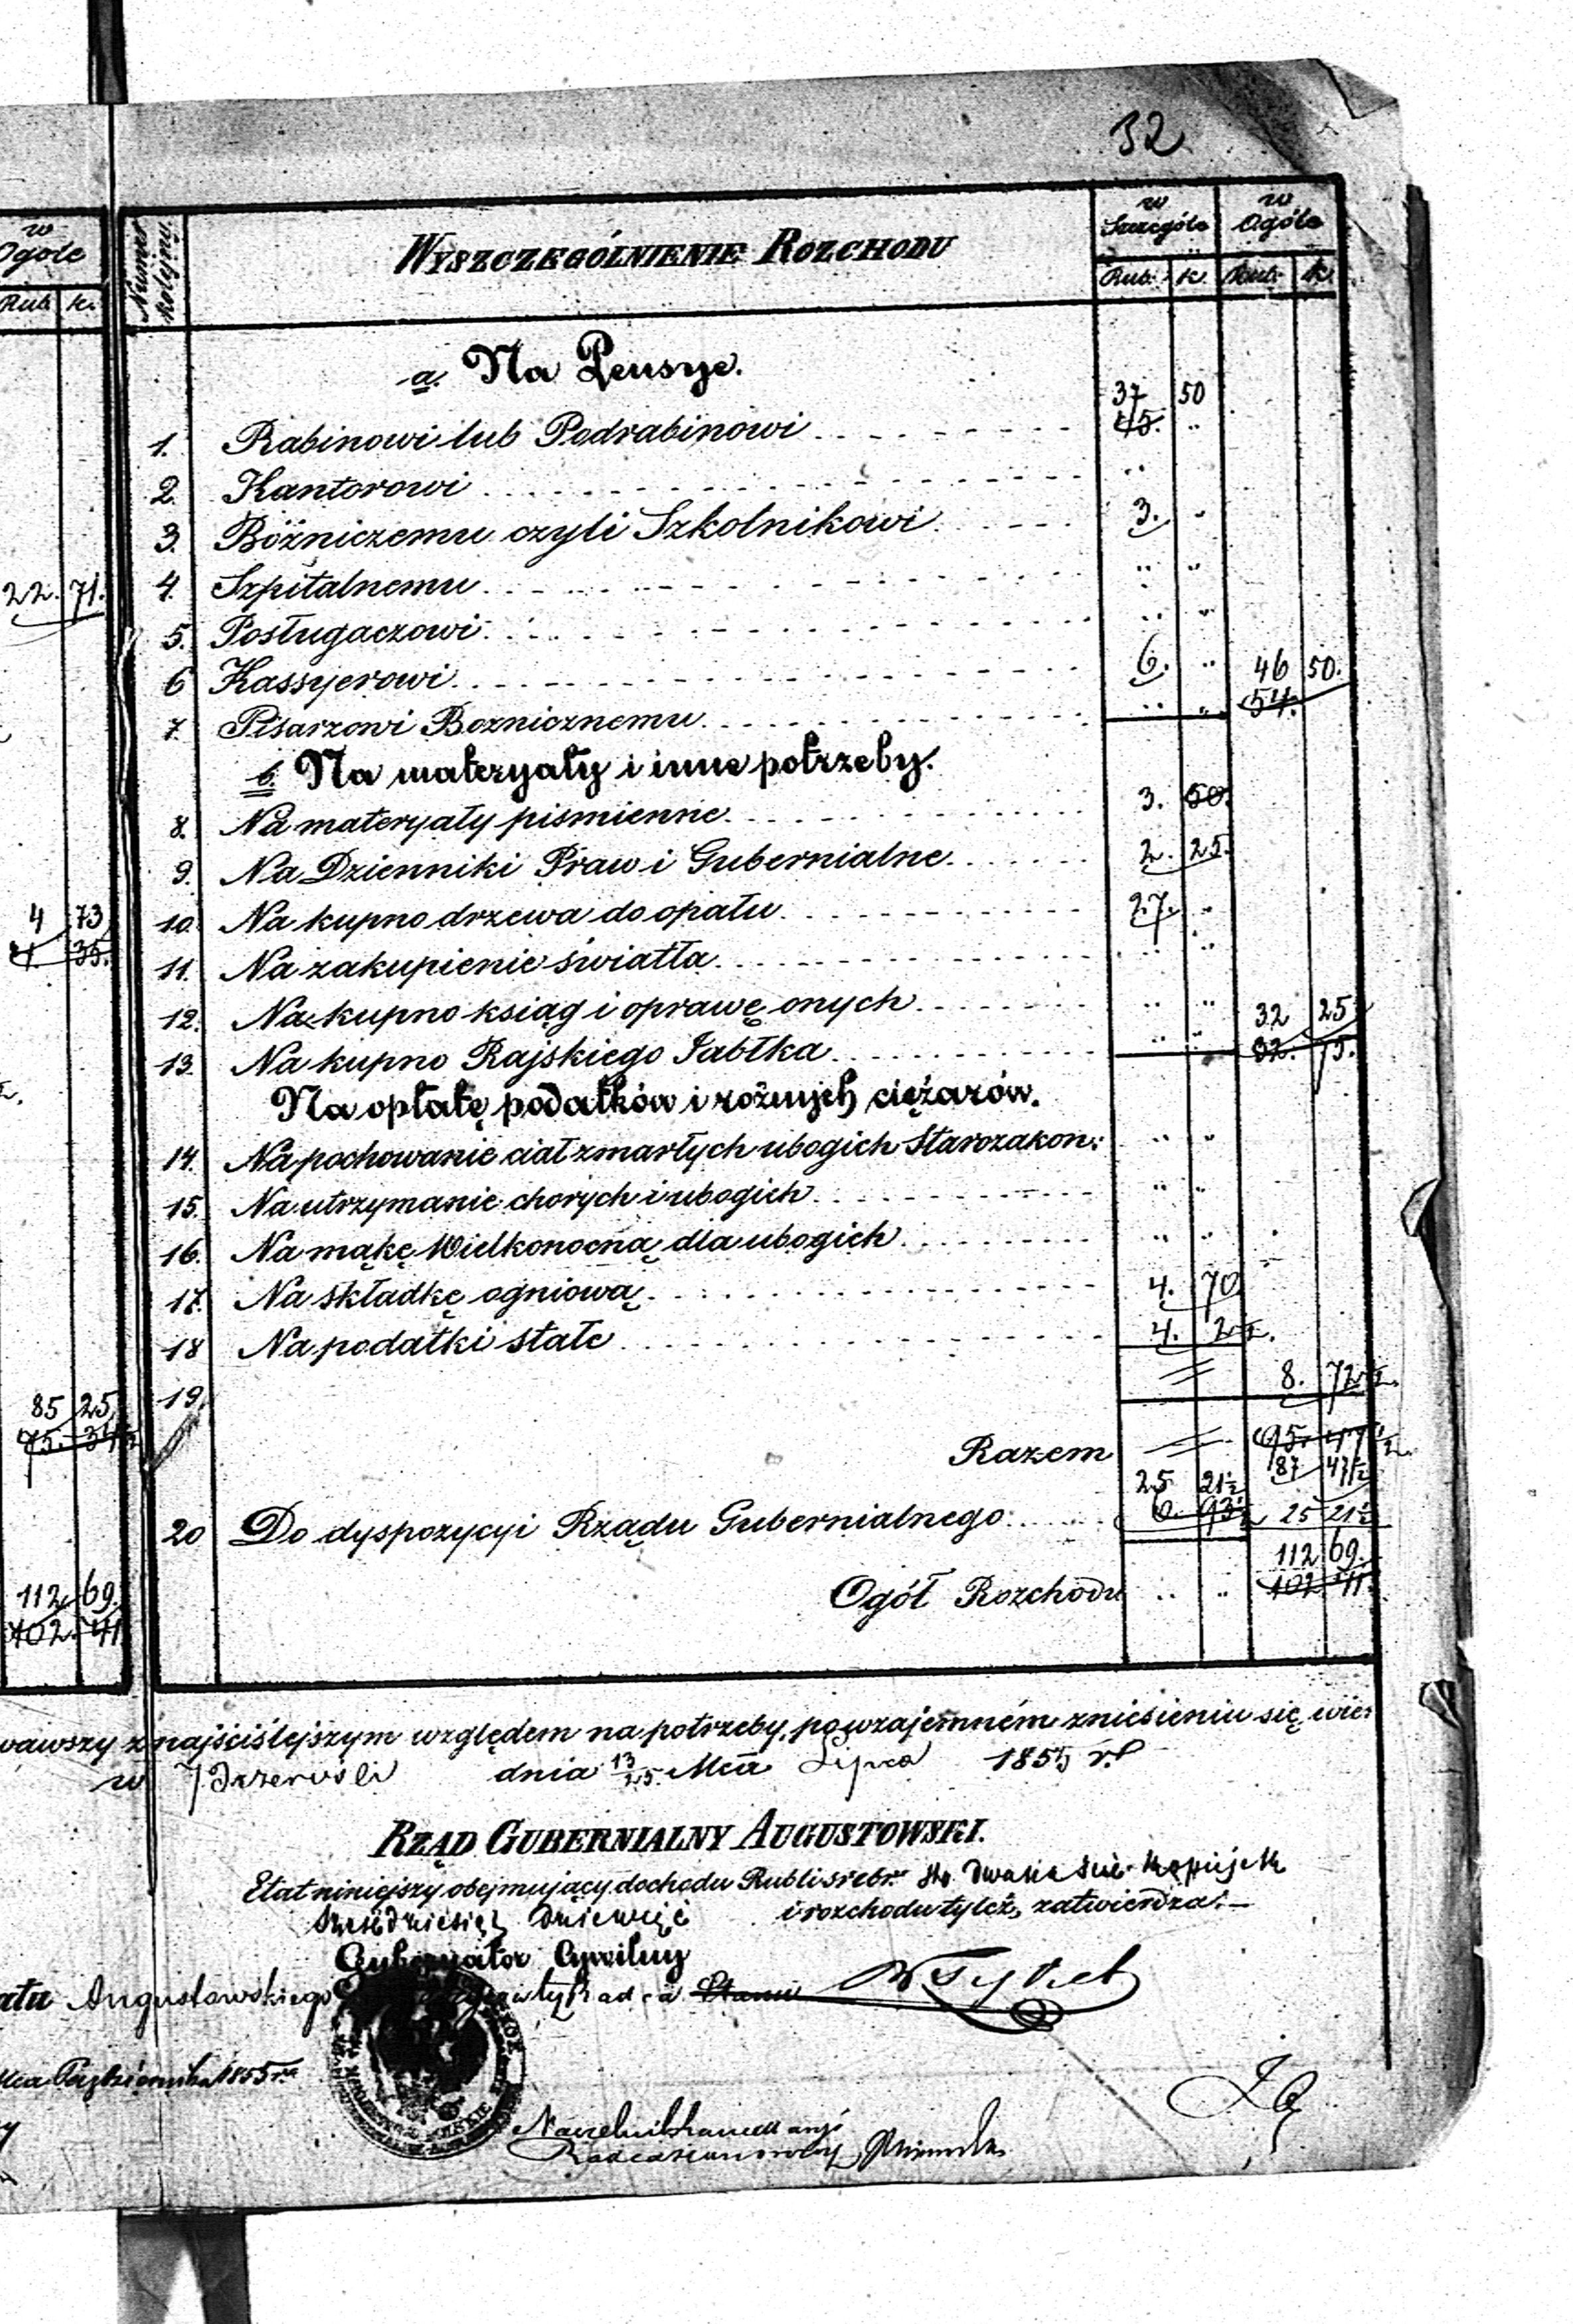 32
w Ogóle
Rub. k.
22. 71.
4 73
4. 35.
85 25
75. 34½
112. 69.
102. 41
Numer kolejny.
WYSZCZEGÓLNIENIE ROZCHODU
w Szczególe
w Ogóle
Rub. k. Rub. k
a. Na Pensye.
37 50
1. Rabinowi lub Podrabinowi 45. "
2. Kantorowi "
3. Bóżniczemu czyli Szkolnikowi 3. "
4. Szpitalnemu " "
5. Posługaczowi " "
6 Kassyerowi 6. " 46 50.
7. Pisarzowi Boznicznemu " " 54.
b. Na materyały i inne potrzeby.
8. Na materyały piśmienne 3. 50.
9. Na Dzienniki Praw i Gubernialne 2. 25.
10. Na kupno drzewa do opału 27. "
11. Na zakupienie światła " "
12. Na kupno ksiąg i oprawę onych " " 32 25
13. Na kupno Rajskiego Jabłka " " 32. 75.
Na opłatę podatków i rożnych ciężarów.
14. Na pochowanie ciał zmarłych ubogich Starozakon: " "
15. Na utrzymanie chorych i ubogich " "
16. Na mąkę Wielkonocną dla ubogich " "
17. Na składkę ogniową 4. 70
18 Na podatki stałe 4. 2½.
19. 8. 72½.
Razem 95. 47½.
87 47½
25 21½
20 Do dyspozycyi Rządu Gubernialnego 6. 93½ 25 21½
112 69.
Ogół Rozchodu " " 102. 41.
wawszy z najściślejszym względem na potrzeby, po wzajemném zniesieniu się, wie:
w dnia 13/25. Mca Lipca 1855 r.
RZĄD GUBERNIALNY AUGUSTOWSKI.
Etat niniejszy obejmujący dochodu Rubli srebr. sto dwanaście kopiejek
sześćdziesiąt dziewięć i rozchodu tyleż, zatwierdza.—
Gubernator Cywilny
Augustowskiego Radca Stanu
Października 1855 r.
Naczelnik Kancellaryi